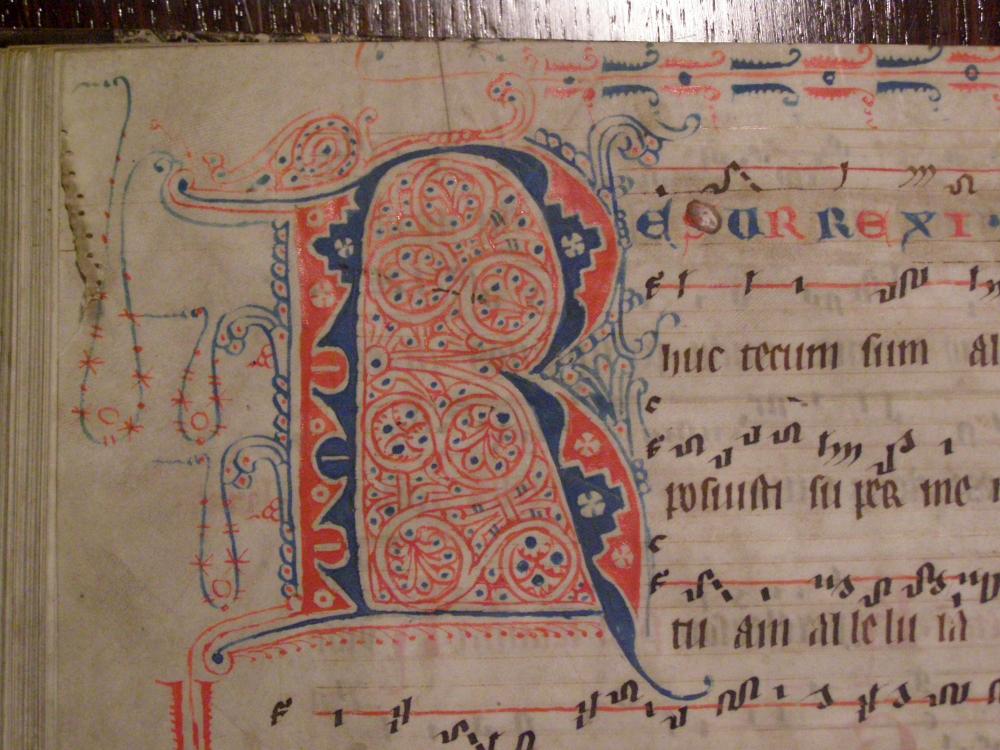 RESURREXI
huc tecum sum al
posuisti su per me
tu am al le lu ia